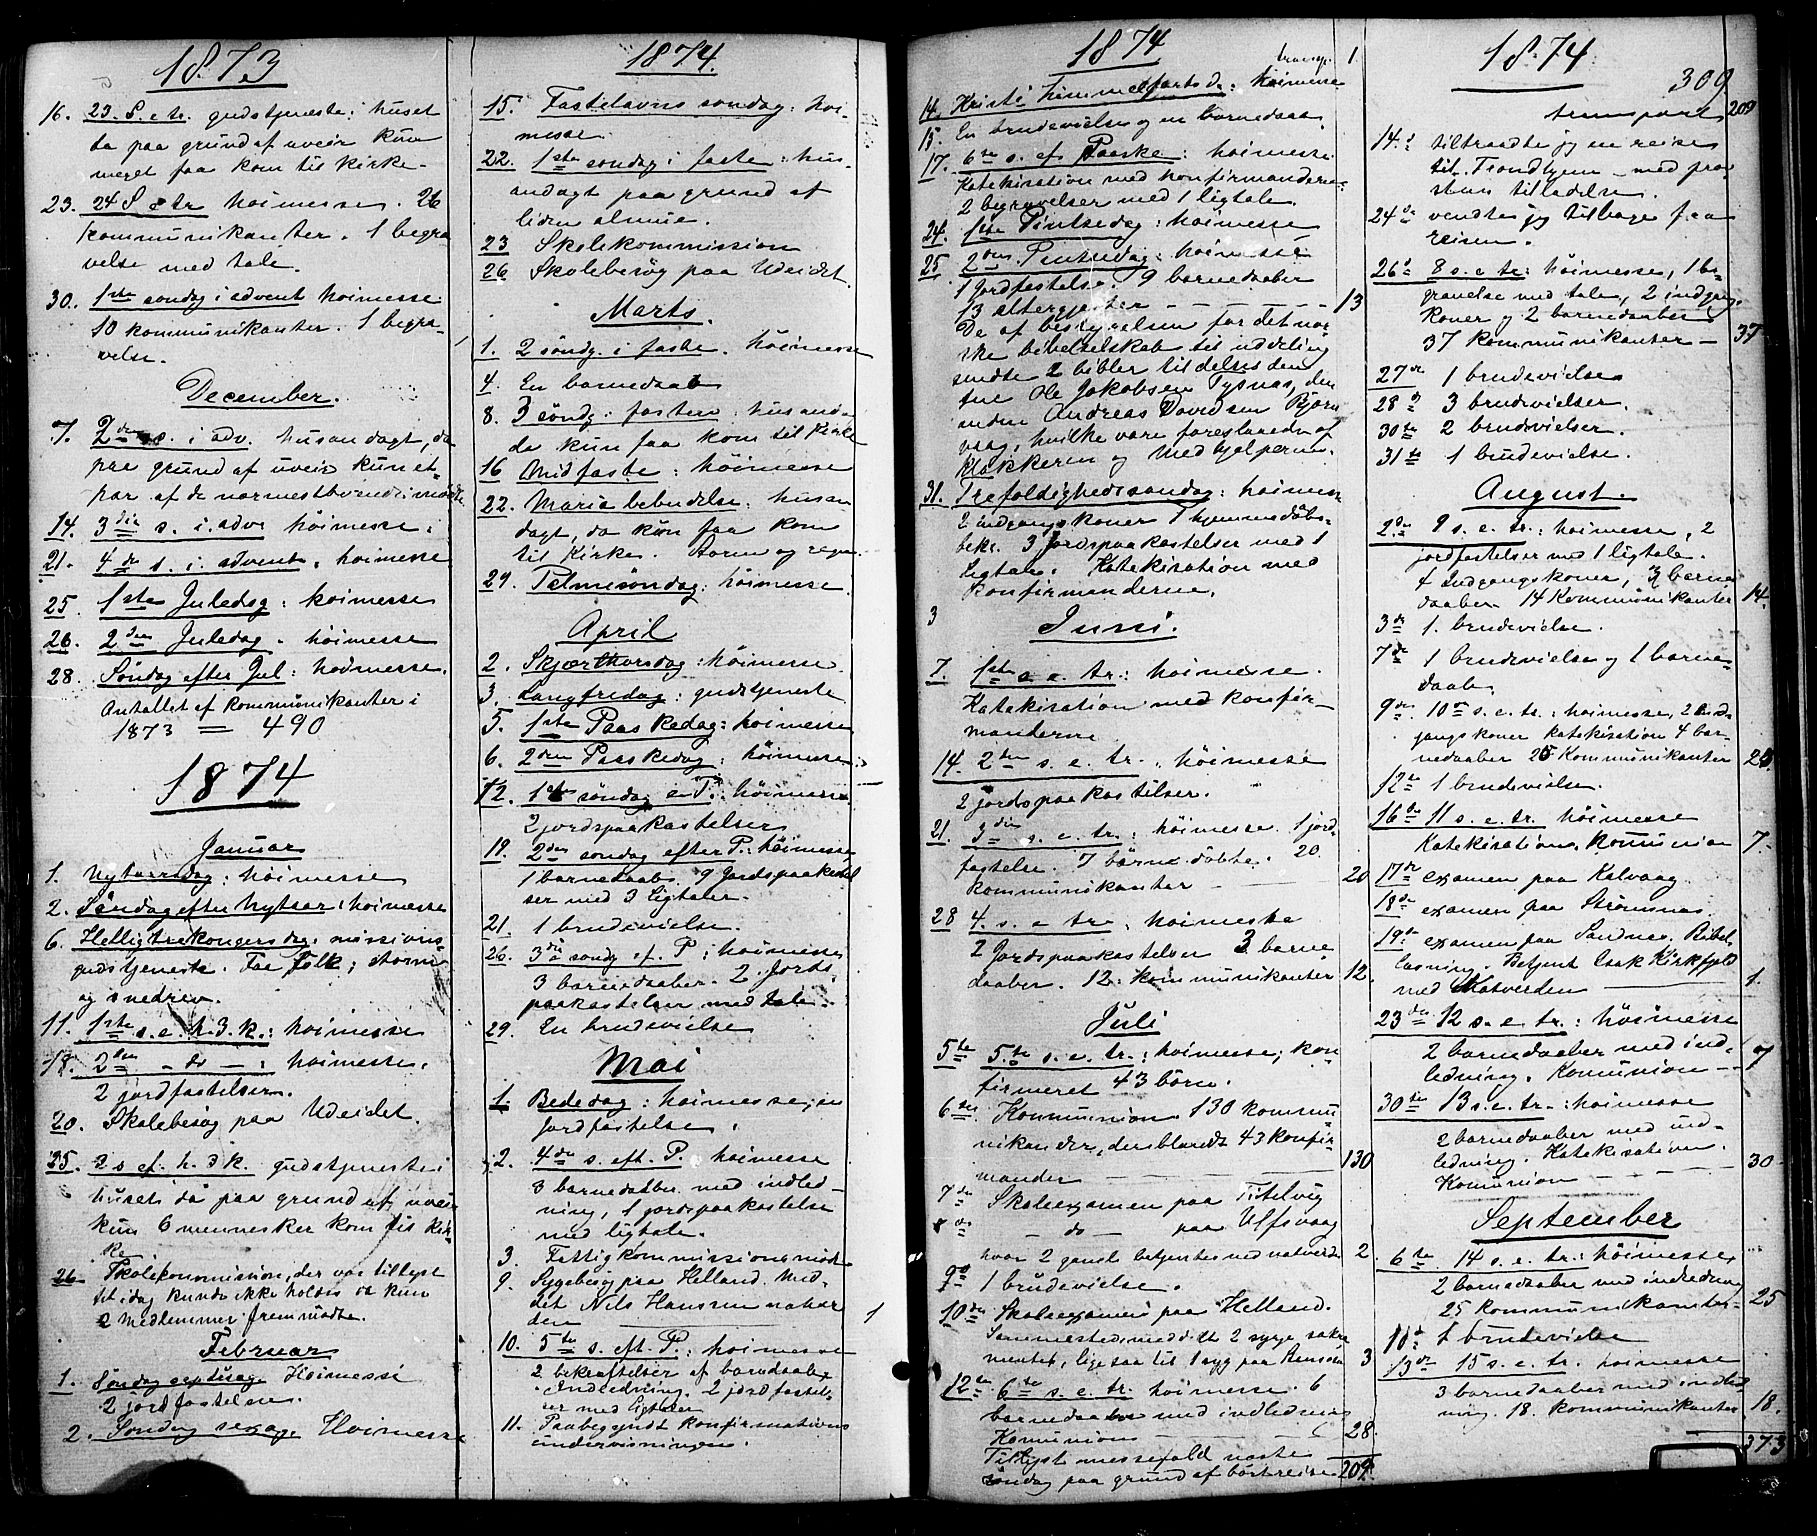 1873
16. 23. S. e. tr. gudstjeneste i huset
da paa grund af uveir kun
meget faa kom til kirke.
23. 24 S. e tr høimesse. 26
kommunikanter. 1 begra
velse med tale.
30. 1ste søndag i advent høimesse
10 kommunikanter. 1 begra-
velse.
December.
7. 2den s. i adv. husandagt, da
paa grund af uveir kun et
par af de nærmestboende i møtte
14. 3die s. i. adv høimesse.
21. 4de s. i. advent. høimesse
25. 1ste Juledag : høimesse
26. 2den Juledag . høimesse
28. Søndag efter Jul : høimesse.
Antallet af kommunikanter i
1873 = 490
1874
Januar
1. Nytaarsdag : høimesse
2. Søndag efter Nytaar : høimesse
6. Helligtrekongersdag : missions-
gudstjeneste. Faa folk; storm
og snedrev.
11. 1ste s. e. h. 3. k. : høimesse
18. 2den - do - : høimesse.
2 jordfæstelser.
20. Skolebesøg paa Udeidet.
25. 3 s. ef. h. 3 k. gudstjeneste i
huset da paa grund af uveir
kun 6 mennesker kom til kir-
ke
26. Skolekommission, der var tillyst
til idag kunde ikke holdes da kun
2 medlemmer fremmødte.
Februar
1. Søndag septuag. Høimesse
2 jordfæstelser.
2. Søndag sexag. Høimesse
1874.
15. Fastelavns søndag : høi-
messe.
22. 1ste søndag i faste : hus-
andagt paa grund af
liden almue.
23 Skolekommission
26 Skolebesøg paa Udeidet.
Marts.
1. 2 søndg. i faste. høimesse
4. En barnedaab
8. 3 søndg : fasten : husanda
da kun faa kom til kirke
16 Midfaste : høimesse
22. Maria bebudelse : husan
dagt, da kun faa kom
til kirke. Storm og regn.
29. Palmesøndag : høimesse
April
2. Skjærthorsdag : høimesse
3. Langfredag : gudstjeneste
5. 1ste Paaskedag : høimesse
6. 2den Paaskedag : høimesse
12. 1ste søndag e P. : høimesse
2 jordspaakastelser
19. 2den søndag efter P. : høimesse
1 barnedaab. 9 Jordspaakastel
ser med 3 ligtaler.
21. 1 brudevielse.
26. 3die søndg ef. P : høimesse
3 barnedaaber. 2 jords
paakastelser med tale.
29. En brudevielse
Mai
1. Bededag : høimesse; en
jordfæstelse.
2. 4de s. eft. P. høimesse
3 barnedaaber med indled-
ning, 1 jordspaakastelse
med ligtale.
3. Fattigkommissionsmøde
9. Sygebesøg paa Helland. Med-
det Nils Hanssen natver
den 1
10. 5te s. eft. P. : høimesse
2 bekræftelser af barnedaaber
Indledning. 2 jordfæstel-
ser med ligtaler
11. Paabegyndt konfirmations
undervisningen.
1874
transp. 1.
14. Kristi himmelfartsd. : høimesse
15. En brudevielse og en barnedaab
17. 6te s. ef Paaske : høimesse
Katekisation med konfirmanderne.
2 begravelser med 1 ligtale.
24. 1ste Pintsedag : høimesse
25 2den Pintsedag : høimesse
1 Jordfæstelse. 9 barnedaaber
13 altergjester 13
De af bestyrelsen for det nor
ske bibelselskab til uddeling
sendte 2 bibler tildeltes den
ene Ole Jakobsen Tysnæs, den
anden Andreas Davidsen Bjørn
vaag, hvilke vare foreslaaede af
Klokkeren og Medhjælperne.
31. Trefoldighedssøndag : høimesse
2 indgangskoner 1 hjemmedaabs-
bekr. 3 Jordspaakastelser med 1
ligtale. Katekisation med
Konfirmanderne.
3
Juni.
7. 1ste s. e. tr. : høimesse.
Katekisation med konfir-
manderne
14. 2den s. e. tr. : høimesse
2 jordspaakastelser.
21. 3die s. e. tr. : høimesse. 1 jord-
fæstelse. 7 børn døbte. 20
kommunikanter 20
28 4. s. e tr. : høimesse
2 Jordspaakastelser 3 barne
daaber. 12 : kommunikanter 12
Juli
5te 5te s. e. tr. : høimesse; kon
firmeret 43 børn.
6te Kommunion. 130 kommu-
nikanter, deriblandt 43 konfir-
mander 130
7de Skoleexamen paa Titelvig
8de - do - paa Ulfsvaag
hvor 2 gamle betjentes med natverde 2
9de 1 brudevielse.
10de Skoleexamen paa Helland.
Sammesteds meddelt 2 syge sakra
mentet, ligesaa til 1 syg paa 3
12te 6te s. e. tr. høimesse. 6
barnedaaber med indledning
Komunion 28
Tillyst messefald næste
søndag paa grund af bortreise 209
1874
309
transport 209
14. tiltraadte jeg en reise
til Trondhjem - med prov
stens tilladelse
24de vendte jeg tilbage fra
reisen.
26de 8 s. e tr : høimesse, 1 be-
gravelse med tale, 2 indgangs
koner og 2 barnedaaber
37 kommunikanter 37
27de 1 brudevielse
28de 3 brudevielser.
30te 2 brudevielser.
31te 1 brudevielse.
August
2den 9 s. e. tr. : høimesse, 2
jordfæstelser med 1 ligtale.
4 indgangskoner, 3 barne
daaber. 14 Kommunikanter 14.
3de 1. brudevielse.
7de 1 brudevielse og 1 barne-
daab.
9de 10de s. e. tr. : høimesse, 2 ind-
gangskoner katekisation 4 bar-
nedaaber 25 Kommunikanter 25.
12te 1 brudevielse.
16de 11 s. e. tr. høimesse
Katekisation, Komunion 7.
17de examen paa Kalvaag.
18de examen paa Strømsnæs.
19de examen paa Sandnes. Bibel
læsning. Betjent Isak Kirkfjeld
med Natverden 1.
23de 12 s. e tr. : høimesse
2 barnedaaber med ind-
ledning. Komunion 7
30te 13 s. e. tr. : høimesse
2 barnedaaber med ind-
ledning. Katekisation.
Komunion 30
September
6te 14 s. e. tr. : høimesse,
2 barnedaaber med indledning
25 kommunikanter 25
10de 1 brudevielse
13de 15 s. e. tr. høimesse
3 barnedaaber med indled
ning. 18. kommunikanter 18.
373